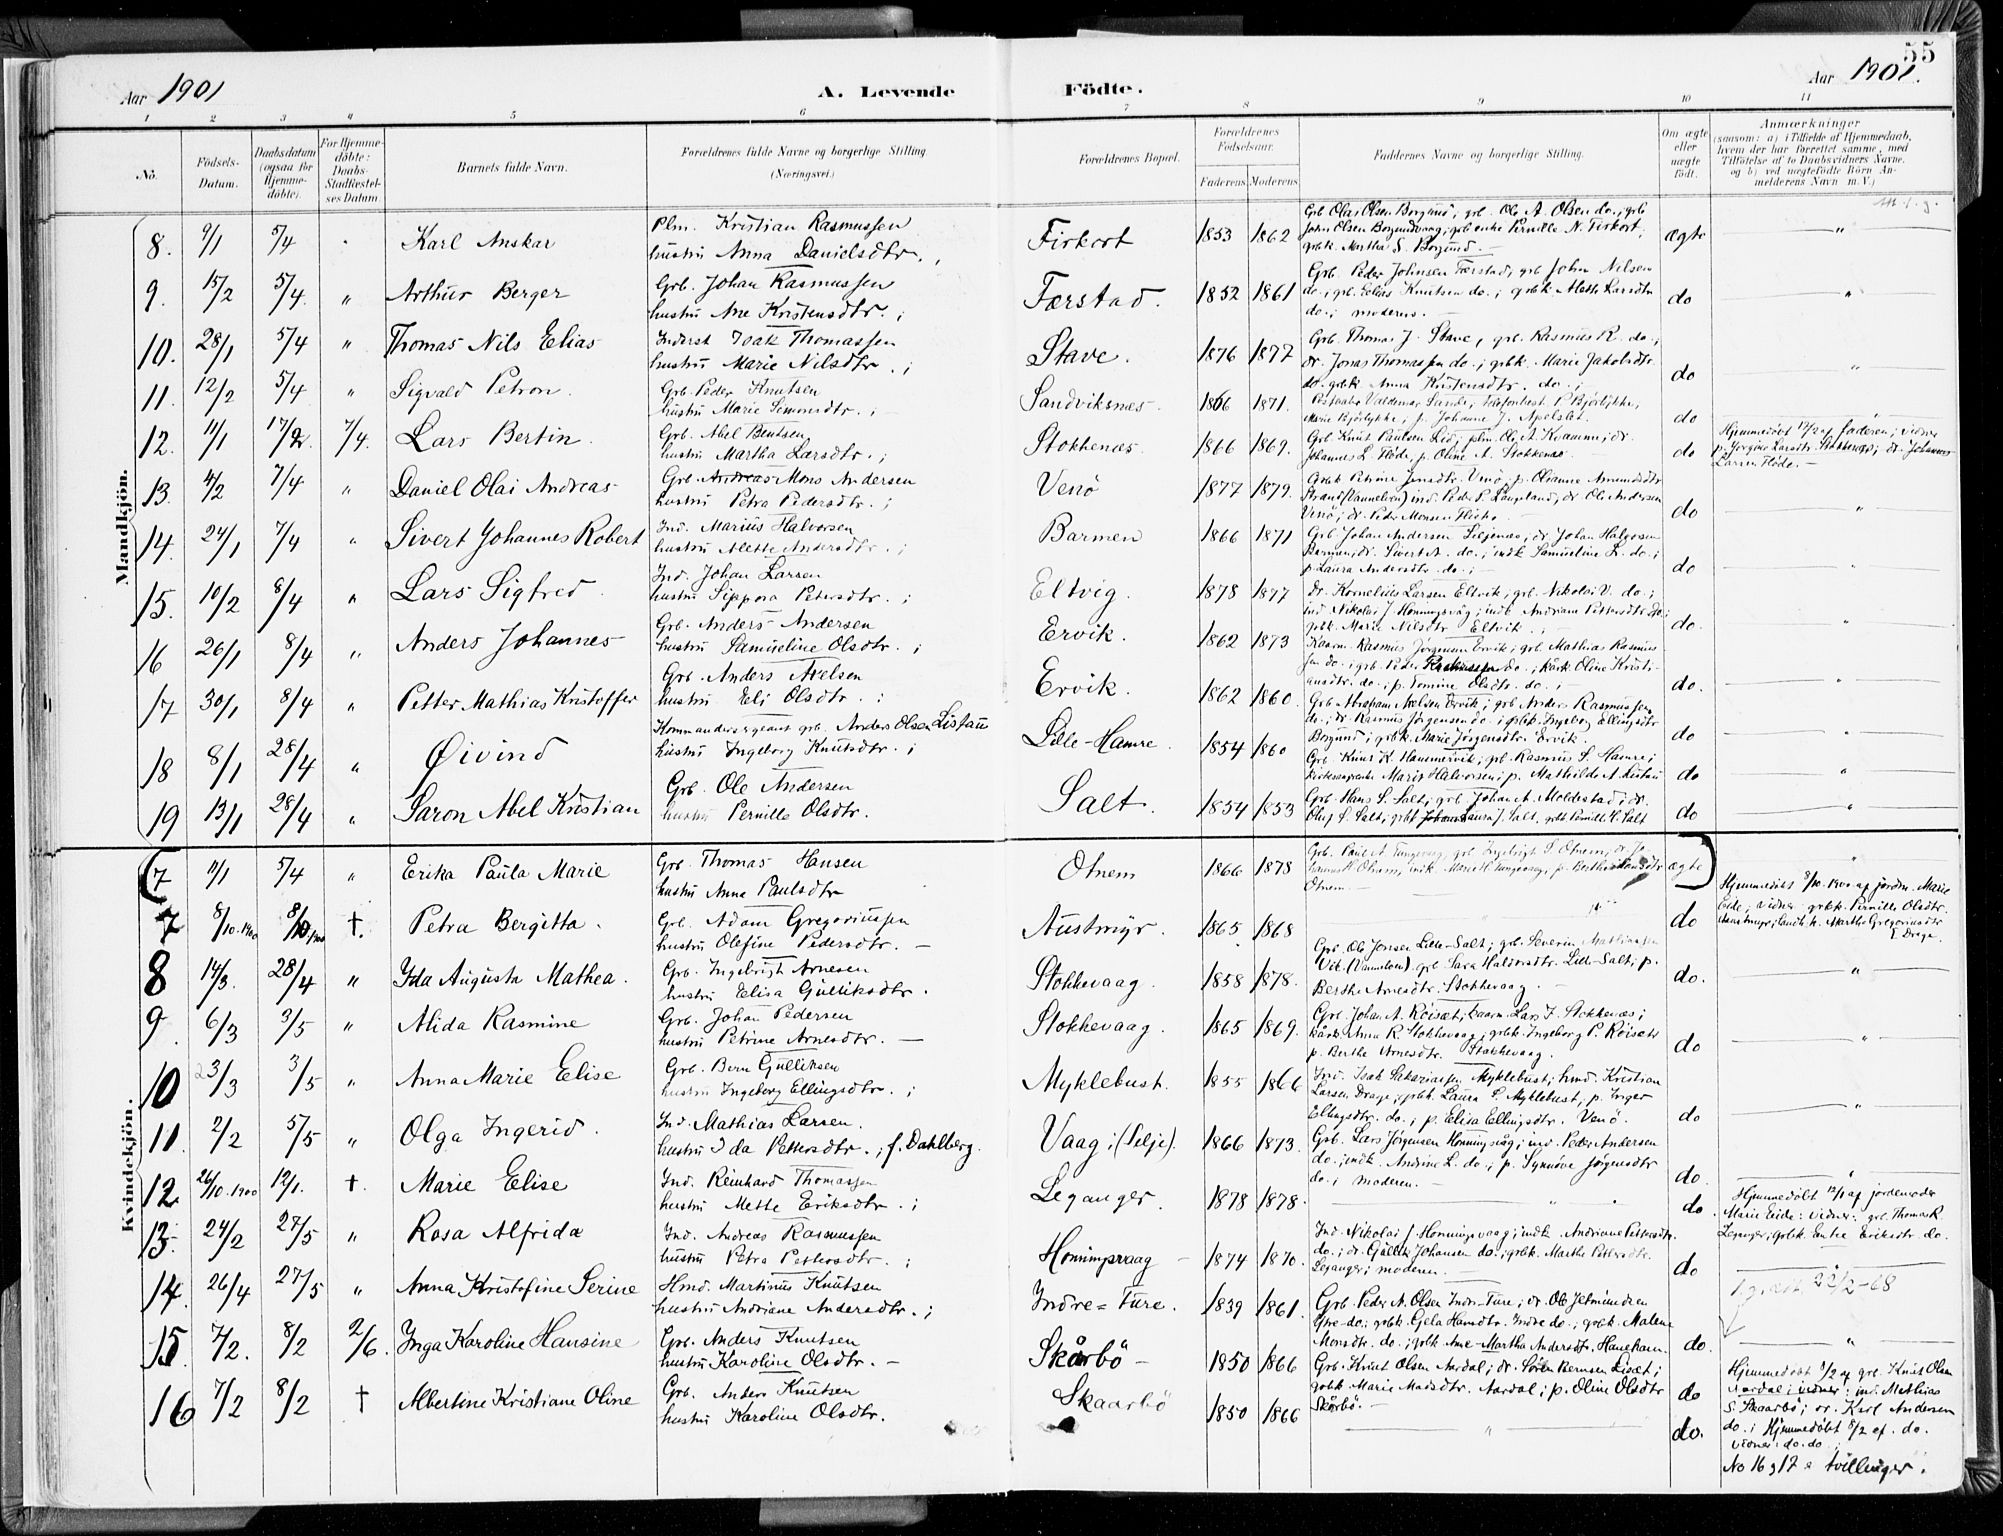 55
Aar 1901
A. Levende
Födte.
Aar 1901.
1 2 3 4 5 6 7 8 9 10 11
No.
Födsels-Datum.
Daabsdatum (ogsaa for Hjemmedöbte).
For Hjemmedöbte: Daabs-Stadfæstelses Datum
Barnets fulde Navn.
Forældrenes fulde Navne og borgerlige Stilling
(Næringsvei.)
Forældrenes Bopæl.
Forældrenes Födselsaar.
Faderens Moderens
Faddernes Navne og borgerlige Stilling.
Om ægte eller uægte födt.
Anmærkninger
(saasom: a) i Tilfælde af Hjemmedaab, hvem der har forrettet samme, med Tilföielse af to Daabsvidners Navne, og b) ved uægtefödte Börn Anmelderens Navn m. V.)
Mandkjön.
8. 9/1 5/4 Karl Anskar
Plm. Kristian Rasmussen
hustru Anna Danielsdtr.
Firkort 1853 1862
Grb Olai Olsen Borgund; grb. Ole A. Olsen do.; grb
John Olsen Borgundvaag; grb enke Pernille N. Firkort;
grbk. Martha S. Borgund.
ægte "
9. 15/2 5/4 " Arthur Berger
Grb. Johan Rasmussen
hustru Ane Kristensdtr.;
Færstad. 1852 1861
Grb. Peder Johnsen Færstad; grb John Nilsen
do.; grb. Elias Knutsen do.; grbk. Alette Larsdtr
do.; moderen.
do "
10. 28/1 5/4 " Thomas Nils Elias
Inderst Isak Thomassen
hustru Marie Nilsdtr.;
Stave. 1876 1877
Grb. Thomas J. Stave, grb. Rasmus R. do.;
dr. Jonas Thomassen do.; grbk. Marie Jakobsdtr
do. grbk. Anna Kristensdtr. do.;
do "
11. 12/2 5/4 " Sigvald Petron.
Grb. Peder Knutsen
hustru Marie Simonsdtr.;
Sandviksnes. 1866 1871.
Valdemar Sande; P. Bjørlykke;
Marie Bjørlykke; p. Johanne J. Apelset.
do "
12. 11/1 17/2 7/4. Lars Bertin.
Grb. Abel Bentsen
hustru Martha Larsdtr.;
Stokkenæs 1866 1869.
Grb. Knut Paulsen Lid; plm. Ole A. Kvamme; dr.
Johannes L. Flöde, p. Oline A. Stokkenæs
do
Hjemmedöbt 17/2 af faderen; vidner
p. Jörgine Larsdtr. Stokkenæs; dr. Johannes
Larsen Flöde.
13. 4/2 7/4 " Daniel Olai Andreas
Grb. Andreas Mons Andersen
hustru Petra Pedersdtr.;
Venö 1877 1879.
Grbk Petrine Jensdtr. Venö; p. Olianne Amundsdtr
Strand (Vannelven) ind. Peder P. Langeland, dr Ole Andersen
Venö; dr. Peder Monsen
do "
14. 24/1 7/4 " Sivert Johannes Robert
Ind. Marius Halvorsen
hustru Alette Andersdtr.;
Barmen 1866 1871
Grb Johan Andersen Siljenæs; dr. Johan Halvorsen
Barmen; dr. Sivert A. do.; indk Samueline L. do.;
p. Laura Andersdtr. do.;
do
15. 10/2 8/4 " Lars Sigfred.
Ind. Johan Larsen
hustru Sippora Petersdtr.;
Eltvig. 1878 1877
dr. Kornelius Larsen Eltvik; grb. Nikolai V. do.;
ind. Nikolai J. Honningsvåg; indk Andriane Pettersdtr do;
grbk. Marie Nilsdtr Eltvik.;
do. "
16 26/1 8/4 " Anders Johannes
Grb. Anders Andersen
hustru Samueline Olsdtr.;
Ervik. 1862 1873
Kaarm. Rasmus Jörgensen Ervik; grb. Mathias Rasmus-
sen do.; grb. Peder Rasmussen do.; kårk. Oline Kristi-
ansdtr. do.; p. Tomine Olsdtr. do.;
do. "
17 30/1 8/4 " Petter Mathias Kristoffer
Grb. Anders Axelsen
hustru Eli Olsdtr.;
Ervik. 1862 1860.
Grb Abraham Axelsen Ervik; grb Anders Rasmussen
do.; dr. Rasmus Jörgensen do.; pbk. Ingeborg Ellingsdtr
Borgund; grbk. Marie Jörgensdtr. Ervik.
do "
18 8/1 28/4 " Øivind
Kommandersergeant grb. Anders Olsen Listau
hustru Ingeborg Knutsdtr.;
Lille-Hamre. 1854 1860
Grb. Knut K. Hammervik; grb. Rasmus S. Hamre;
Marit Halvorsen; p. Mathilde A. Listau
do "
19 13/1 28/4 " Saron Abel Kristian
Grb. Ole Andersen
hustru Pernille Olsdtr.
Salt. 1854 1853
Grb. Hans S. Salt; grb Johan A. Moldestad; dr.
Oluf S. Salt; grbk Laura J. Salt, grbk Pernille K. Salt
do "
Kvindekjön.
(7 11/1 5/4 " Erika Paula Marie
Grb. Thomas Hansen
hustru Anne Paulsdtr
Otnem 1866 1878
Grb. Paul A. Tungevaag, grb Ingebrigt S. Otnem; dr. Jo-
hannes H. Otnem, indk. Marie H. Tungevaag, p. Berthe Hansdtr
Otnem.
ægte) "
7 8/10.1900 8/10 1900 †. Petra Bergitta.
Grb. Adam Gregoriussen
hustru Olefine Pedersdtr. –
Austmyr. 1865 1868
do
Hjemmedöbt 8/10.1900 af jordm. Marie
Eide; vidner grbk. Pernille Olsdtr.
Austmyr; Martha Gregoriusdtr
Drage.
8 14/3. 28/4 " Ida Augusta Mathea.
Grb. Ingebrigt Arnesen
hustru Elisa Gulliksdtr.
Stokkevaag. 1858 1878.
Grb. Ole Jonsen Lille-Salt; grb. Severin Mathiassen
Vik (Vannelven) grb Sara Haldorsdtr. Lille-Salt; p.
Berthe Arnesdtr. Stokkevaag.
do. "
9. 6/3 3/5 " Alida Rasmine
Grb. Johan Pedersen
hustru Petrine Arnesdtr. –
Stokkevaag. 1865 1869.
Grb. Johan A. Röiset; kaarm. Lars J. Stokkenæs;
kårk. Anna R. Stokkevaag; grbk. Ingeborg P. Röiset;
p. Berthe Arnesdtr. Stokkevaag.
do "
10 23/3 3/5 " Anna Marie Elise
Grb. Bern Gulliksen
hustru Ingeborg Ellingsdtr.;
Myklebust. 1855 1866
Ind. Isak Sakariassen Myklebust; hmd. Kristian
Larsen Drage; grbk. Laura S. Myklebust; p. Inger
Ellingsdtr. do.; p. Elisa Ellingsdtr. Venö.
do "
11. 2/2 5/5 " Olga Ingerid.
Ind. Mathias Larsen.
hustru Ida Pettersdtr.; f. Dahlberg.
Vaag; (Selje). 1866 1873.
Grb. Lars Jörgensen Honningsvåg; ind. Peder Andersen
do.; indk. Andrine L. do.; p. Synnöve Jörgensdtr
do.; moderen.
do. "
12. 26/10.1900 12/1. †. Marie Elise
Ind. Reinhard Thomassen
hustru Mette Eriksdtr.;
Leganger. 1878 1878.
" do.
Hjemmedöbt 12/1 af jordemoder
Marie Eide: vidner: grb. Thomas R.
Leganger; grbk. Eriksdtr. do.
13. 24/2 27/5 " Rosa Alfrida
Ind. Andreas Rasmussen
hustru Petra Pettersdtr.;
Honningsvaag – 1874 1870.
Ind. Nikolai J. Honningsvaag; indk. Andriane Pettersdtr.
do.; dr. Gullik Johansen do.; grbk. Marthe Petersdtr.
Leganger; moderen.
do "
14. 26/4 27/5 " Anna Kristofine Serine
Hmd. Martinus Knutsen
hustru Andriane Andersdtr.;
Indre=Fure. 1839 1861.
Grb. Peder A. Olsen Indre-Fure; dr. Ole Jetmundsen
Ytre-do.; grbk. Gela Hansdtr. Indre do.; grbk. Malene
Monsdtr. do.; grbk. Ane-Martha Andersdtr. Hanekam.
do.
22/2-68
15 7/2. 8/2 2/6. Inga Karoline Hansine
Grb. Anders Knutsen
hustru Karoline Olsdtr. –
Skårbö – 1850 1866
Grb. Knut Olsen Aardal; dr. Sören Berntsen Liset;
grbk. Marie Madsdtr. Aardal; p. Oline Olsdtr
Skårbö.
do
Hjemmedöbt 8/2 af grb. Knut Olsen
Aardal; vidner: ind. Mathias
S. Skaarbö; dr. Karl Andersen
do.;
16 7/2 8/2 † Albertine Kristiane Oline
Grb. Anders Knutsen
hustru Karoline Olsdtr.
Skaarbö 1850 1866
" do.
Hjemmedöbt 8/2 af. do.
vidner: do. do.
No 16 g 17 = tvillinger.